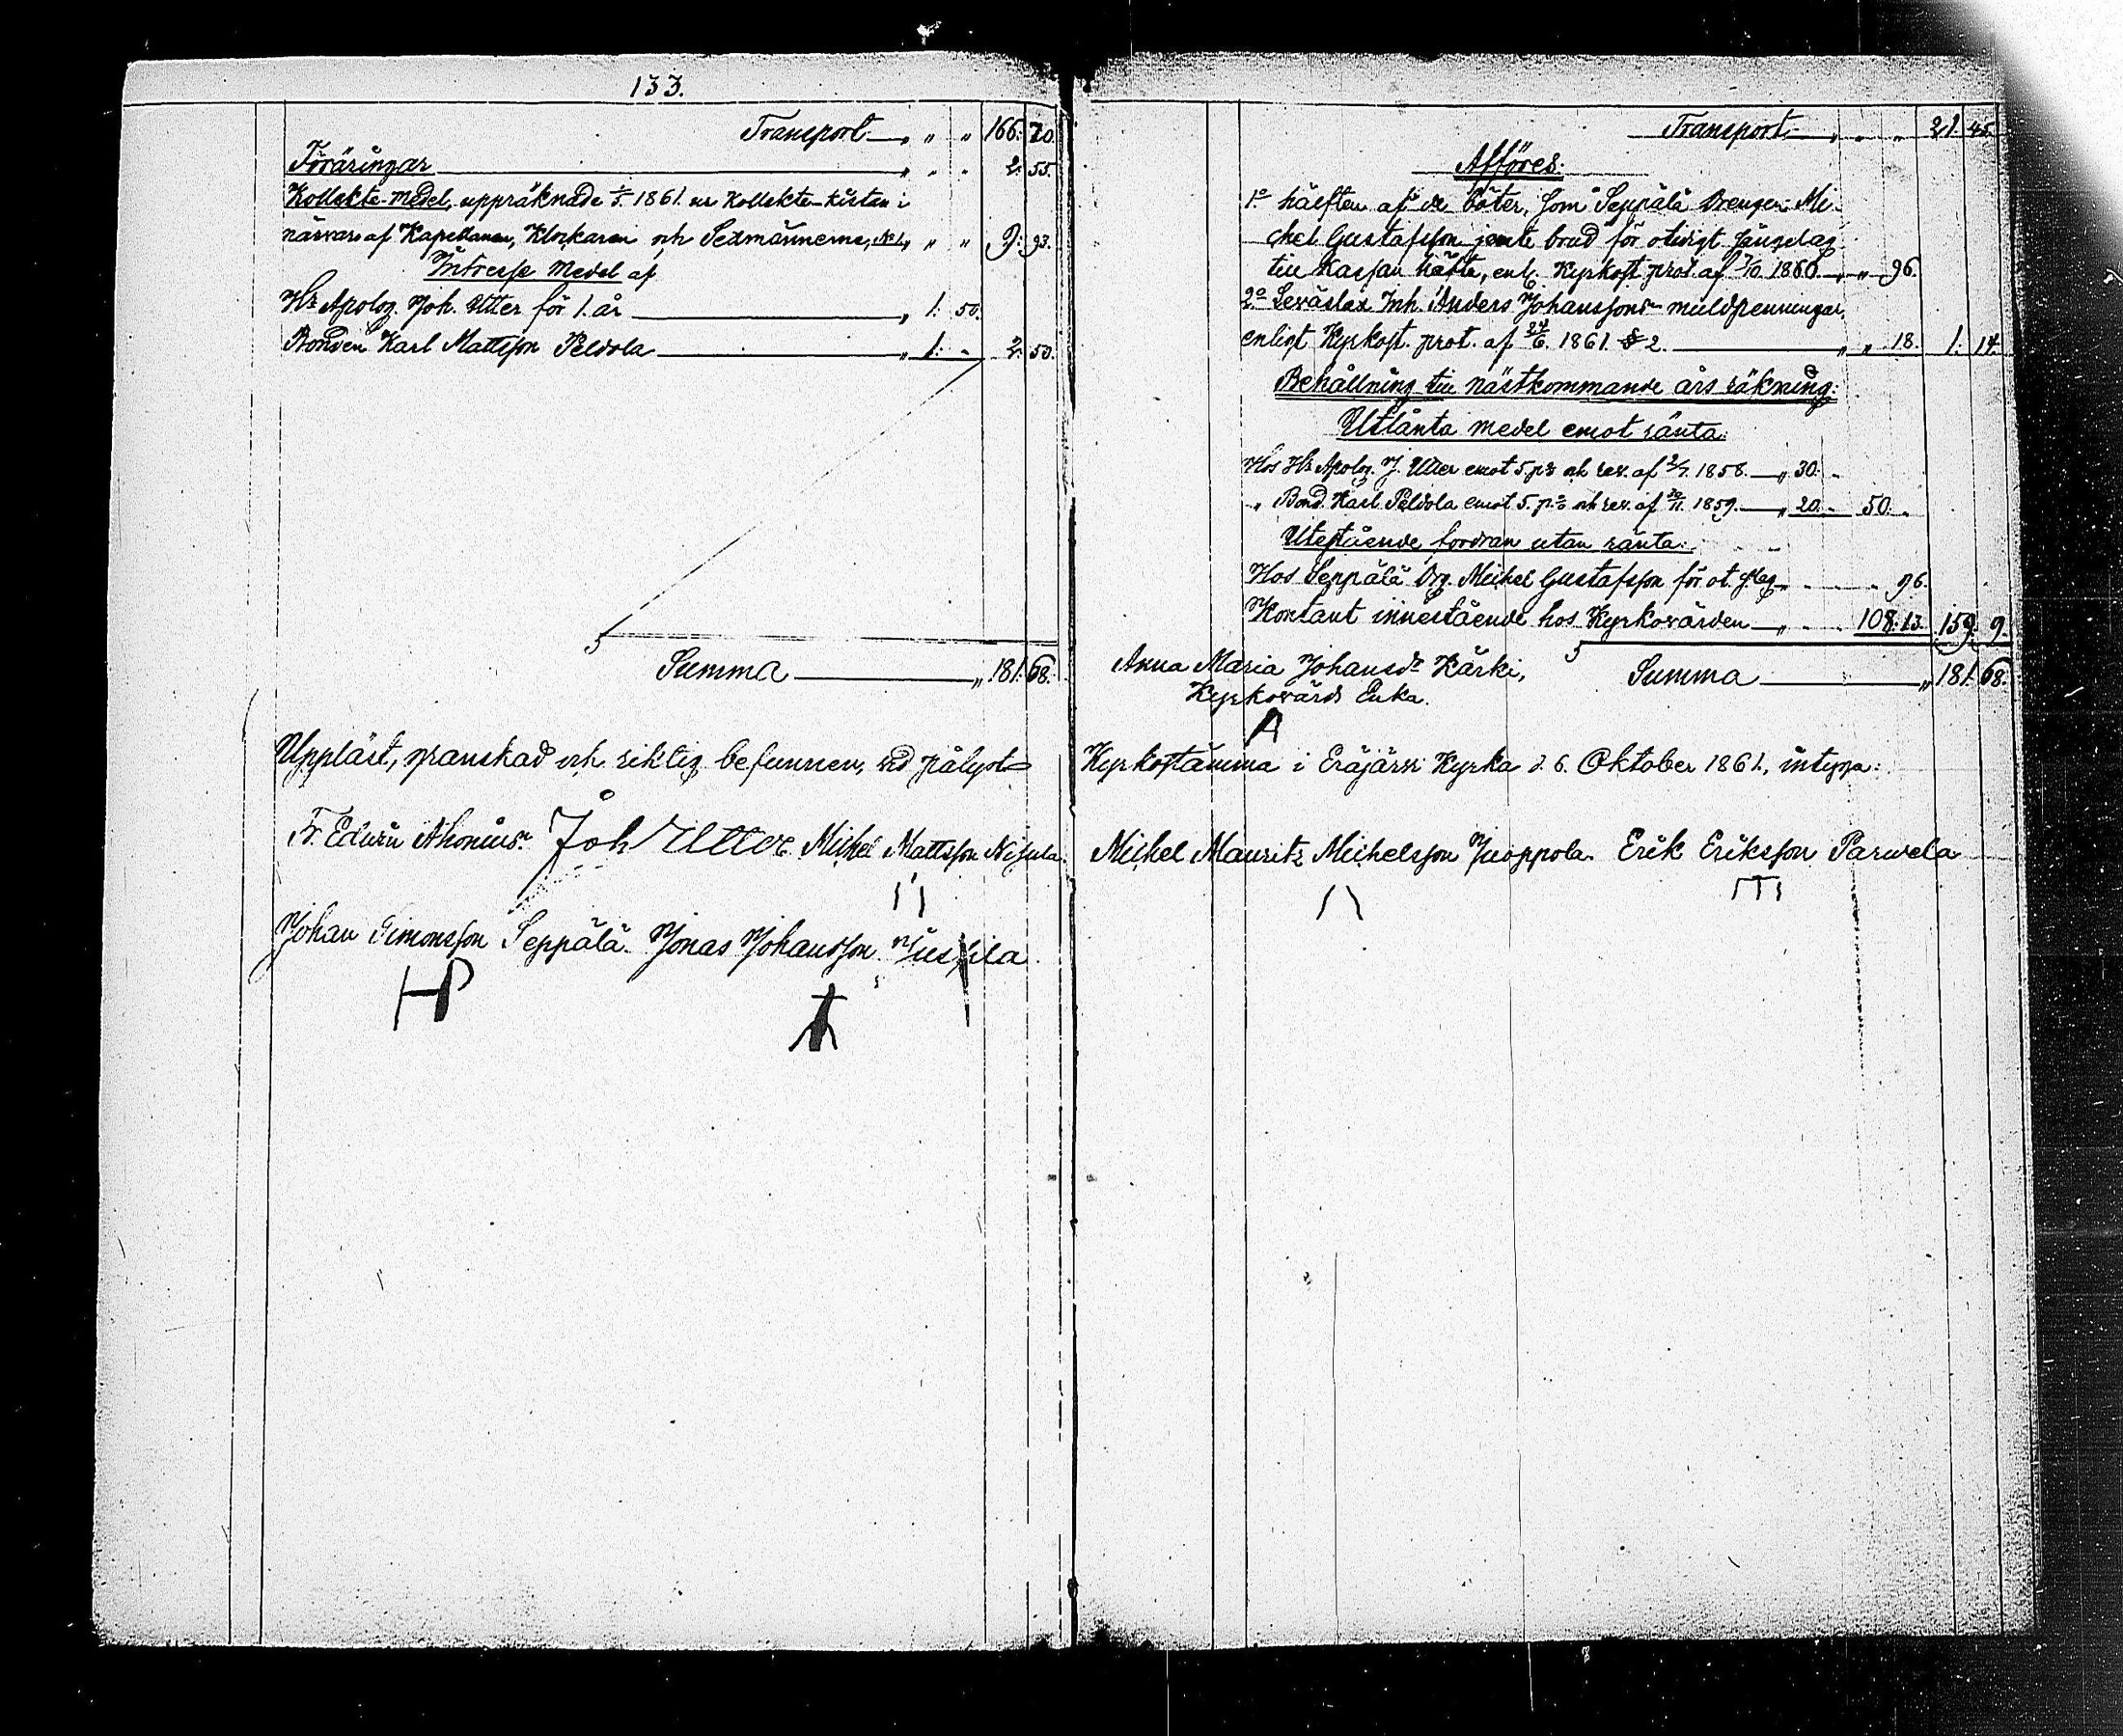 133.
Transport " " " 166. 70.
Föräringar " " " 2. 55.
Kollekte-Medel, uppräknade 1861. ur Kollekte-kistan i
närvaro af Kapellanen, Klockaren och Sexmännerne, " " 9. 93.
Intresse Medel af
Hr Apolog. Joh. Utter för 1. år " 1. 50.
Bonden Karl Mattsson Peldola " 1. - 2. 50.
Summa " 181. 68.
Uppläst, granskad och riktig befunnen, vid pålyst
Fr. Edwin Ahonius. Joh Utter Michel Mattsson Nisula.
Johan Simonsson Seppälä. Jonas Johansson
Transport " " " 21. 45.
Afföres.
1o hälften af de böter, som Seppälä Drengen Mi-
chel Gustafsson jemte brud för otidigt sängelag
till Kassan häfta, enl. Kyrkost. prot. af 7/10. 1860. " " 96.
2o Leväslax Inh. Anders Johanssons mullpenningar,
enligt Kyrkost. prot. af 24/6. 1861. § 2. " " 18. 1. 14.
Behållning till nästkommande års räkning:
Utlånta medel emot ränta:
Hos Hr Apolog. J. Utter emot 5. pr och rev. af 2/7. 1858. " 30. -
" Bond. Karl Peldola emot 5. pr och rev. af 20/11. 1859. " 20. - 50. -
Utestående fordran utan ränta:
Hos Seppälä Drg. Michel Gustafsson för ot. s.lag " 96.
Kontant innestående hos Kyrkovärden " 108. 13. 159. 9.
Anna Maria Johansdr Kärki, Summa " 181. 68.
Kyrkovärds Enka.
Kyrkostämma i Eräjärvi Kyrka d. 6. Oktober 1861., intyga:
Michel Mauritz Michelsson Juoppola. Erik Eriksson Parwela